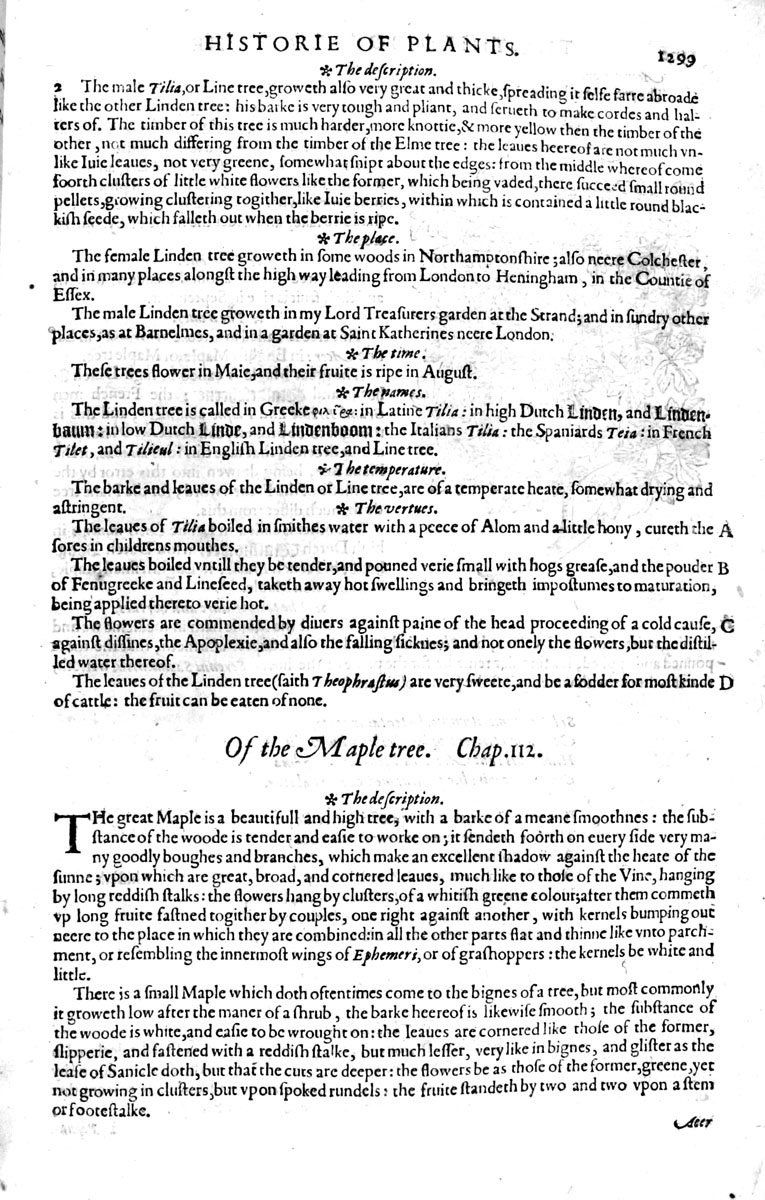 HISTORIE OF PLANTS.
1299
✻ The deſcription.
2 The male Tilia, or Line tree, groweth alſo very great and thicke, ſpreading it ſelfe farre abroade
like the other Linden tree: his barke is very tough and pliant, and ſerueth to make cordes and hal-
ters of. The timber of this tree is much harder, more knottie, & more yellow then the timber of the
other, not much differing from the timber of the Elme tree: the leaues heereof are not much vn-
like Iuie leaues, not very greene, ſomewhat ſnipt about the edges: from the middle whereof come
foorth cluſters of little white flowers like the former, which being vaded, there ſucceed ſmall round
pellets, growing cluſtering togither, like Iuie berries, within which is contained a little round blac-
kiſh ſeede, which falleth out when the berrie is ripe.
✻ The place.
The female Linden tree groweth in ſome woods in Northamptonſhire; alſo neere Colcheſter,
and in many places alongſt the high way leading from London to Heningham, in the Countie of
Eſſex.
The male Linden tree groweth in my Lord Treaſurers garden at the Strand; and in ſundry other
places, as at Barnelmes, and in a garden at Saint Katherines neere London.
✻ The time.
Theſe trees flower in Maie, and their fruite is ripe in Auguſt.
✻ The names.
The Linden tree is called in Greeke : in Latine Tilia: in high Dutch Linden, and Linden-
baum: in low Dutch Linde, and Lindenboom: the Italians Tilia: the Spaniards Teia: in French
Tilet, and Tilieul: in Engliſh Linden tree, and Line tree.
✻ The temperature.
The barke and leaues of the Linden or Line tree, are of a temperate heate, ſomewhat drying and
aſtringent.
✻ The vertues.
The leaues of Tilia boiled in ſmithes water with a peece of Alom and a little hony, cureth the A
ſores in childrens mouthes.
The leaues boiled vntill they be tender, and pouned verie ſmall with hogs greaſe, and the pouder B
of Fenugreeke and Lineſeed, taketh away hot ſwellings and bringeth impoſtumes to maturation,
being applied thereto verie hot.
The flowers are commended by diuers againſt paine of the head proceeding of a cold cauſe, C
againſt diſſines, the Apoplexie, and alſo the falling ſicknes; and not onely the flowers, but the diſtil-
led water thereof.
The leaues of the Linden tree (ſaith Theophraſtus) are very ſweete, and be a fodder for moſt kinde D
of cattle: the fruit can be eaten of none.
Of the Maple tree. Chap. 112.
✻ The deſcription.
THe great Maple is a beautifull and high tree, with a barke of a meane ſmoothnes: the ſub-
ſtance of the woode is tender and eaſie to worke on; it ſendeth foorth on euery ſide very ma-
ny goodly boughes and branches, which make an excellent ſhadow againſt the heate of the
ſunne; vpon which are great, broad, and cornered leaues, much like to thoſe of the Vine, hanging
by long reddiſh ſtalks: the flowers hang by cluſters, of a whitiſh greene colour; after them commeth
vp long fruite faſtned togither by couples, one right againſt another, with kernels bumping out
neere to the place in which they are combined: in all the other parts flat and thinne like vnto parch-
ment, or reſembling the innermoſt wings of Ephemeri, or of graſhoppers: the kernels be white and
little.
There is a ſmall Maple which doth oftentimes come to the bignes of a tree, but moſt commonly
it groweth low after the maner of a ſhrub, the barke heereof is likewiſe ſmooth; the ſubſtance of
the woode is white, and eaſie to be wrought on: the leaues are cornered like thoſe of the former,
ſlipperie, and faſtened with a reddiſh ſtalke, but much leſſer, very like in bignes, and gliſter as the
leafe of Sanicle doth, but that the cuts are deeper: the flowers be as thoſe of the former, greene, yet
not growing in cluſters, but vpon ſpoked rundels: the fruite ſtandeth by two and two vpon a ſtem
or footeſtalke.
Acer